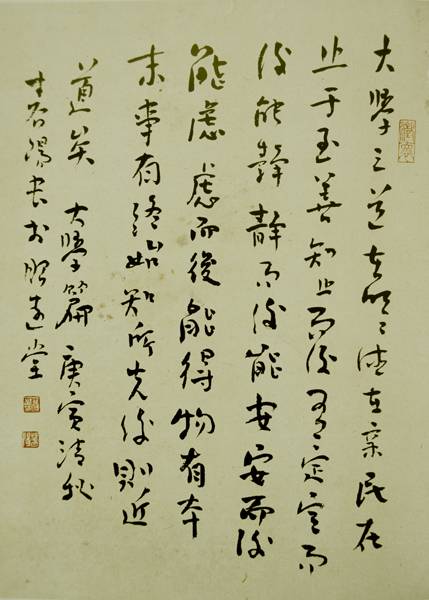 大學之道在明明德在亲民在
止于至善知止而後有定定而
後能静静而後能安安而後
能慮慮而後能得物有本
末事有終始知所先後則近
道矣 大學篇 庚寅清秋
書於 堂